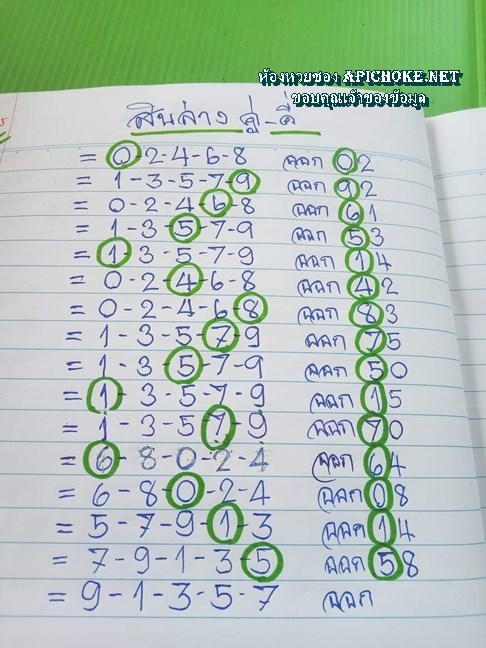 ห้องหวยซอง APICHOKE.NET
ขอบคุณเจ้าของข้อมูล
สิบล่าง คู่-คี่
= 0-2-4-6-8 ออก 02
= 1-3-5-7-9 ออก 92
= 0-2-4-6-8 ออก 61
= 1-3-5-7-9 ออก 53
= 1-3-5-7-9 ออก 14
= 0-2-4-6-8 ออก 42
= 0-2-4-6-8 ออก 83
= 1-3-5-7-9 ออก 75
= 1-3-5-7-9 ออก 50
= 1-3-5-7-9 ออก 15
= 1-3-5-7-9 ออก 70
= 6-8-0-2-4 ออก 64
= 6-8-0-2-4 ออก 08
= 5-7-9-1-3 ออก 14
= 7-9-1-3-5 ออก 58
= 9-1-3-5-7 ออก